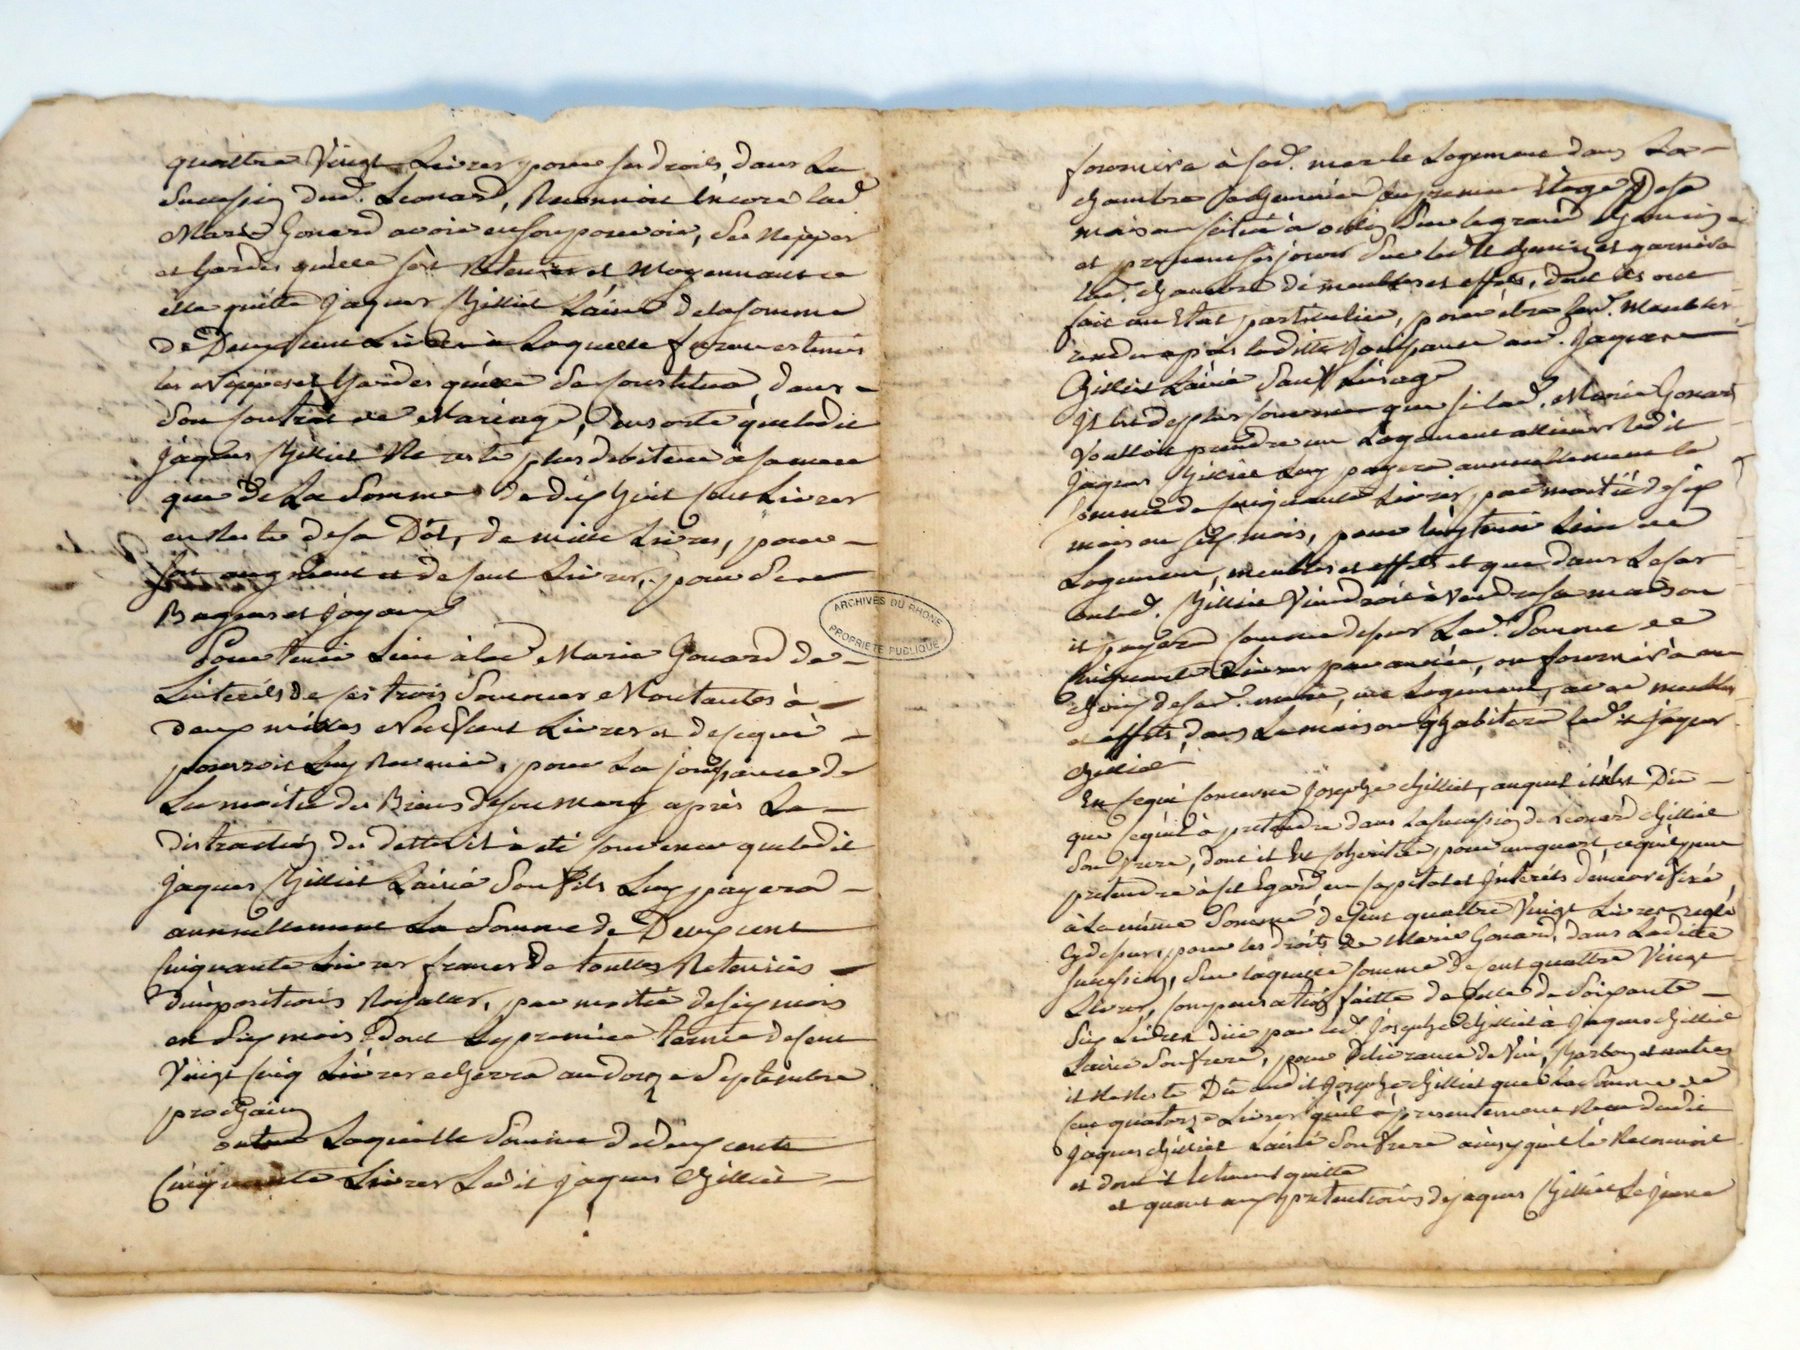 quattre Vingt Livres pour ses droits, dans La
Sucession dud. Leonard, Reconnoit Encore lad.
Marie Gonard avoir en son pouvoir, des Nippes
et hardes qu'elle s'est Retenües et Moyennant ce
elle quitte Jaques Gilliet L'ainé de la somme
de Deux cent Livres à Laquelle furent estimés
les Nippes et hardes qu'elle se Constitua, dans
Son Contrat de Mariage, Ensorte que ledit
Jaques Gilliet Ne reste plus debiteur à sa mere
que de La Somme de dix huit cent Livres
en Reste de sa Dot, de mille Livres, pour
son augment et de cent Livres, pour Ses
Bagues et Joyaux
Pour tenir Lieu à lad. Marie Gonard des
Interets de ces trois Sommes Montantes à
deux milles Neuf cent Livres et de ce qui
pourroit Luy Revenir, pour La jouissance de
La moitié des Biens de son mary après La
distraction des dettes il à été Convenu que ledit
Jaques Gilliet L'ainé Son fils Luy payera
annuellement La Somme de Deux cent
Cinquante Livres franes de touttes Retenües
d'impositions Royalles, par moitié de six mois
en Six mois dont Le premier terme de cent
Vingt Cinq Livres echerra au douze Septembre
prochain
outre Laquelle Somme de deux cents
Cinquante Livres Ledit Jaques Gilliet
fournira à sad. mere le Logement dans La
Chambre à cheminée au premier Etage De sa
maison située à sur le grand Chemin
et prenant ses jours sur led. Chemin et garnira
lad. Chambre de meubles et effets, dont ils ont
fait un Etat particulier, pour être lesd. Meubles
rendus après laditte Joüissance aud. Jaques
Gilliet L'ainé Sauf L'usage
Il est de plus convenu que si lad. Marie Gonard
Vouloit prendre un Logement ailleurs ledit
Jaques Gilliet Luy payera annuellement la
Somme de cinquante Livres, par moitié de six
mois en six mois, pour luy tenir Lieu de
Logement, meubles et effets et que dans Le cas
ou led. Gilliet Viendroit à Vendre sa maison
il payera comme dessus Lad. Somme de
Cinquante Livres par année, ou fournira au
Choix de sad. mere, un Logement, avec meubles
et effets, dans La maison qu'habitera led. Jaques
Gilliet
En ce qui Concerne Joseph Gilliet, auquel il n'est Dû
que ce qu'il à pretendre dans La sucession de Leonard Gilliet
Son frere, dont il Est Coheritier pour un quart, ce qu'il peut
pretendre à cet Egard, en Capital et Intérêts demeure fixé
à La même Somme de cent quattre Vingt Livres reglé
Cy dessus, pour les droits de Marie Gonard, dans Laditte
Sucession, Sur laquelle somme de cent quattre Vingt
Livres, Compensation faitte de celle de Soixante
Six Livres düe par led. Joseph Gilliet à Jaques Gilliet
L'ainé Son frere, pour Délivrance de Vin, et autres
il Ne Reste Dû audit Joseph Gilliet que La Somme de
Cent quatorze Livres qu'il à presentement Reçu dudit
Jaques Gilliet L'ainé Son frere ainsy qu'il le Reconnoit
et dont il le tient quitte
et quant aux pretentions de Jaques Gilliet Le Jeune
ARCHIVES DU RHONE
PROPRIETE PUBLIQUE